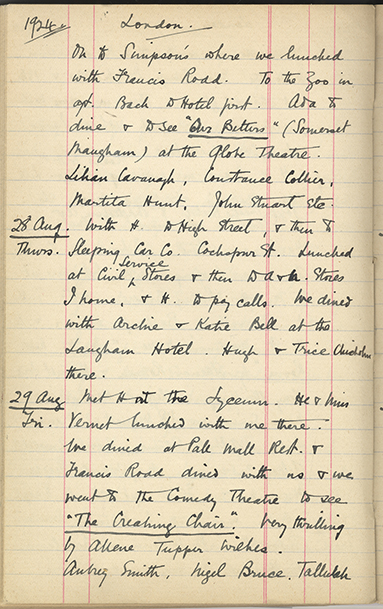 1924. London.
On to Simpson's where we lunched
with Francis Rodd. To the Zoo in
aft. Back to Hotel first. Ada to
dine & to see "Our Betters" (Somerset
Maugham) at the Globe Theatre.
Lilian Cavanagh, Constance Collier,
Martita Hunt, John Stuart Etc.
28 Aug. With H. to High Street, & then to
Thurs. Sleeping Car Co. Cockspur St. Lunched
at Civil Service Stores & then to A & N. Stores
I home, & H. to pay calls. We dined
with Archie & Katie Bell at the
Langham Hotel. Hugh & Trice Chisholm
there.
29 Aug Met H at the Lyceum. He & Miss
Fri. Vernet lunched with me there.
We dined at Pall Mall Rest. &
Francis Rodd dined with us & we
went to the Comedy Theatre to see
"The Creaking Chair". Very thrilling
by Allene Tupper Wilkes.
Aubrey Smith, Nigel Bruce, Tallulah